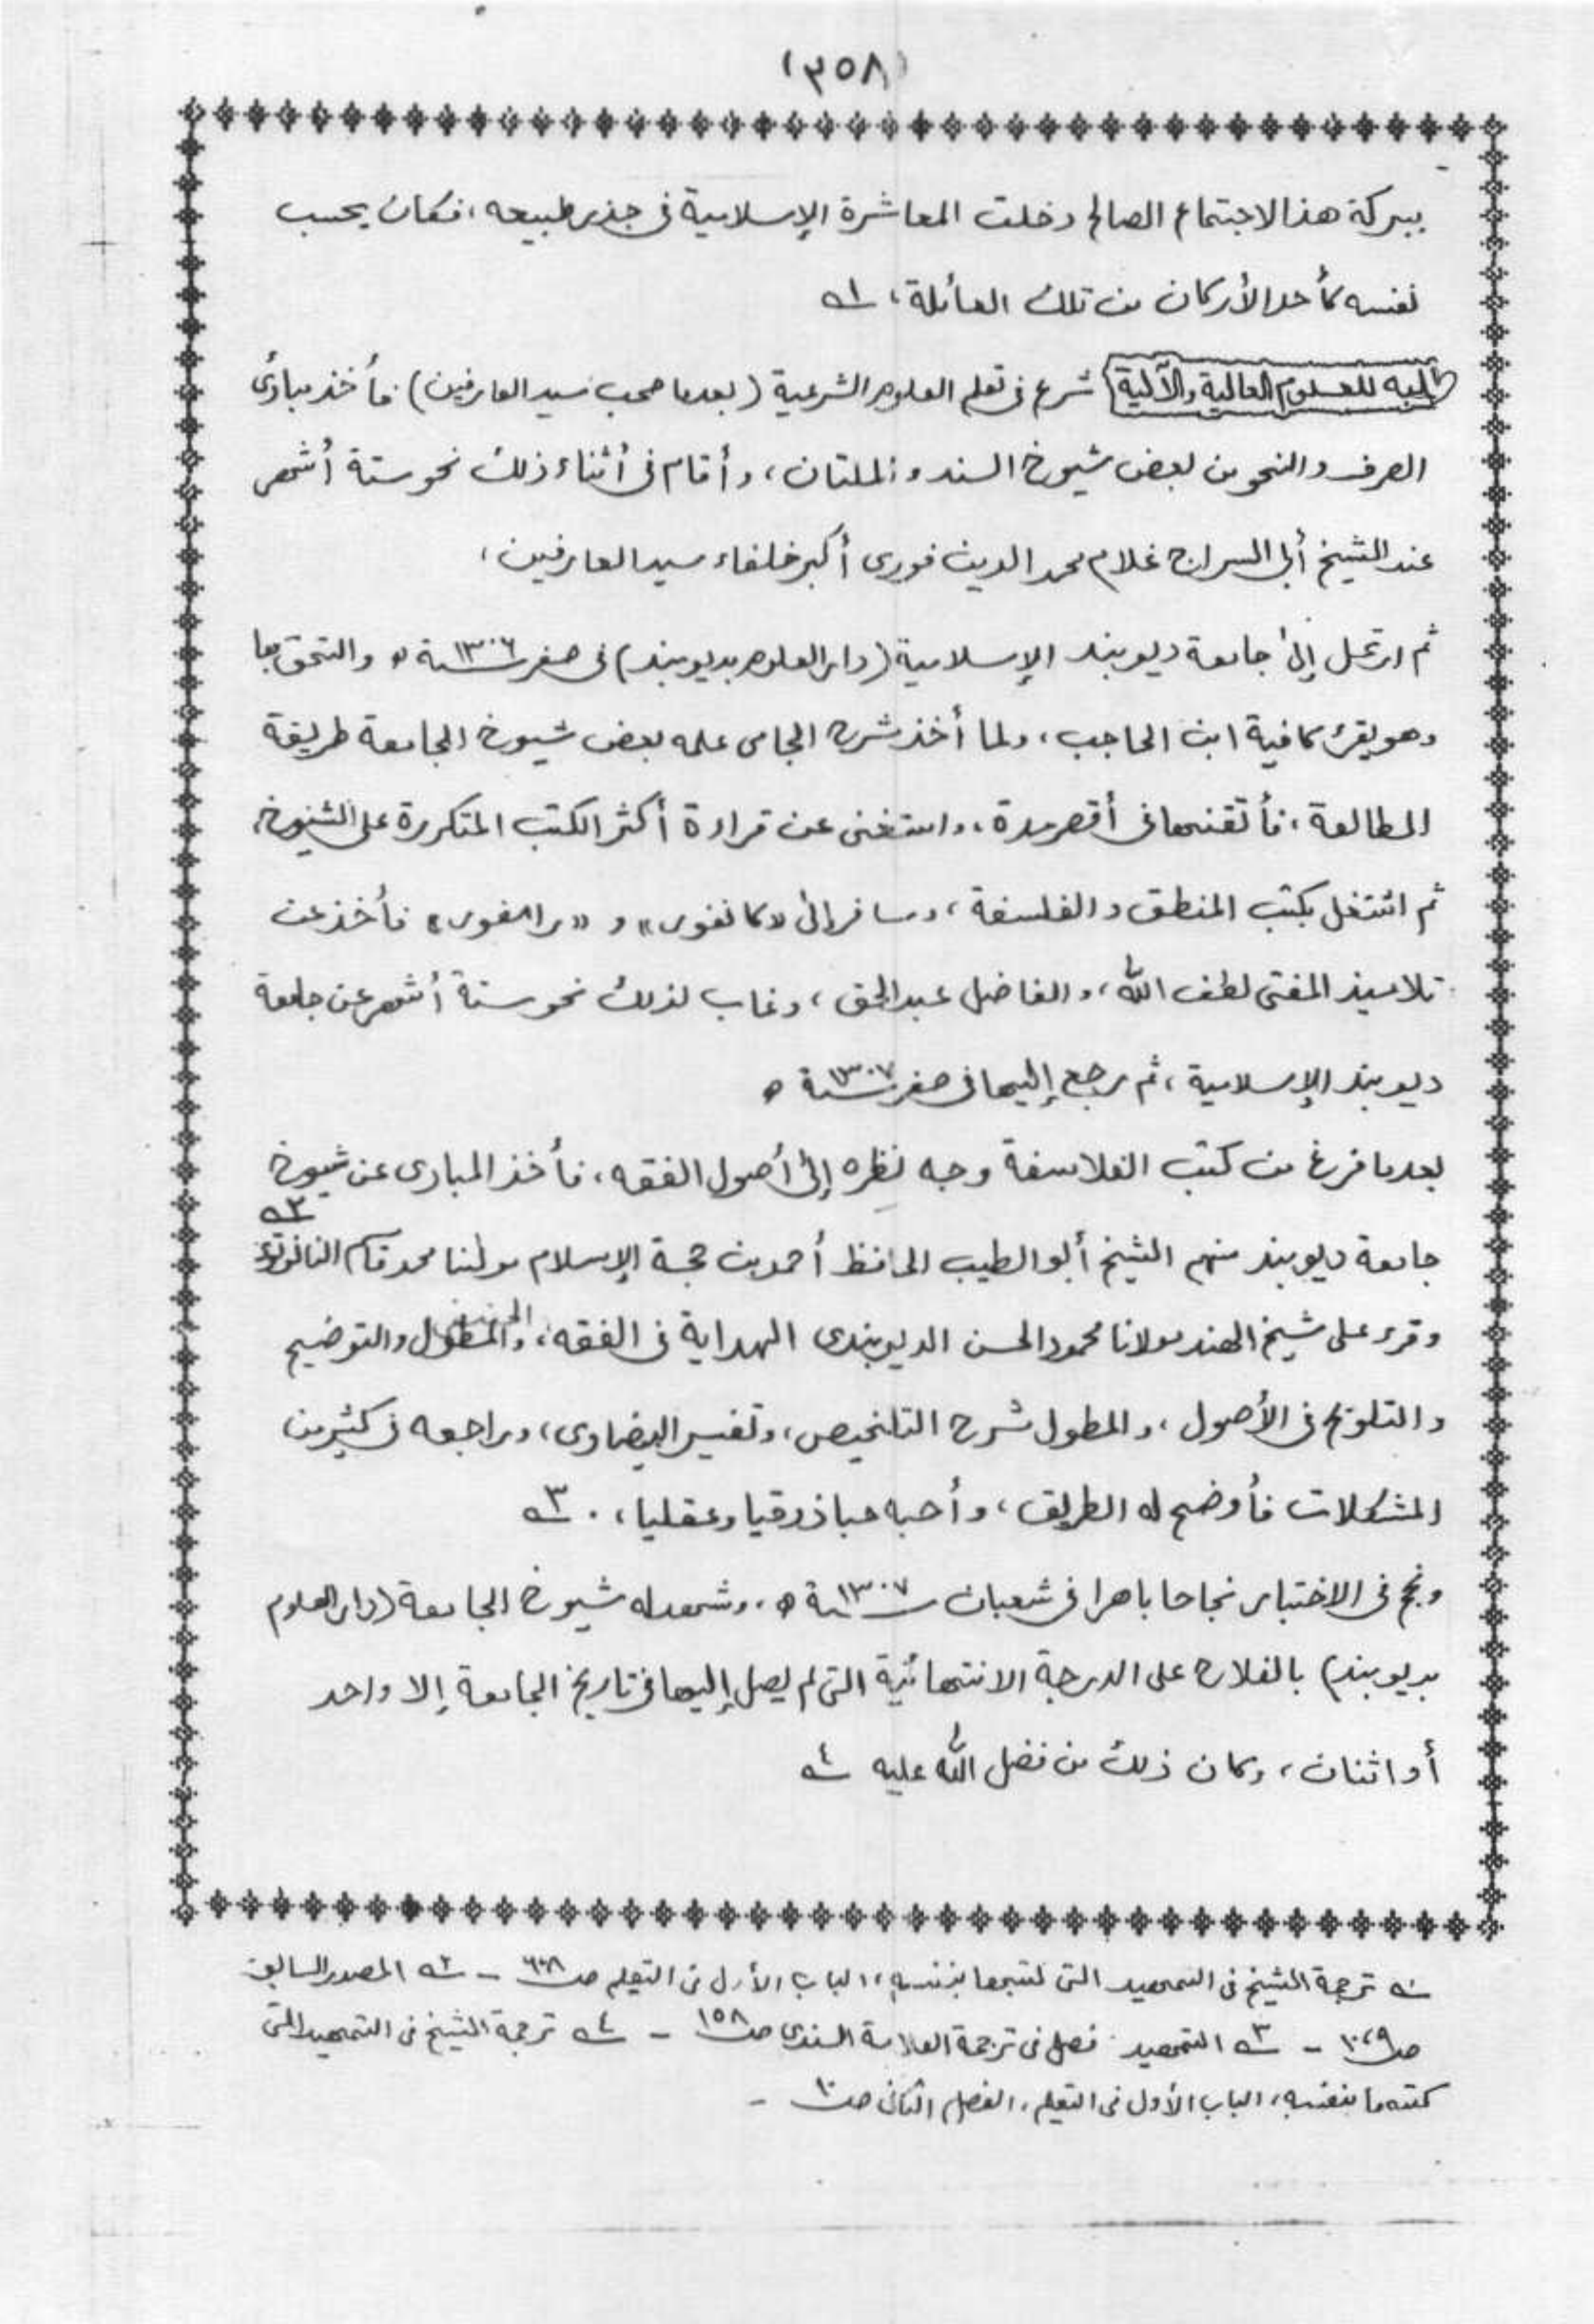 (٣٥٨)
ببركة هذا الاجتماع الصالح دخلت المعاشرة الإسلامية فى جذر طبيعه، فكان يحسب
نفسه كأحد الأركان من تلك العائلة، ١ـه
طلبه للعلوم العالية والآلية شرع فى تعلم العلوم الشرعية (بعدما صحب سيد العارفين) فأخذ مبادئ
الصرف والنحو من بعض شيوخ السند و الملتان، وأقام فى أثناء ذلك نحو ستة أشهر
عند الشيخ أبى السراج غلام محمد الدين فورى أكبر خلفاء سيد العارفين،
ثم ارتحل إلى جامعة ديوبند الإسلامية (دار العلوم بديوبند) فى صفر سنة ١٣٠٦ ه والتحق بها
وهو يقرئ كافية ابن الحاجب، ولما أخذ شرح الجامى علمه بعض شيوخ الجامعة طريقة
المطالعة، فأتقنها فى أقصر مدة، واستغنى عن قراءة أكثر الكتب المتكررة على الشيوخ،
ثم اشتغل بكتب المنطق والفلسفة، وسافر إلى «كانفور» و «رامفور» فأخذ عن
تلاميذ المفتى لطف الله، والفاضل عبد الحق، وغاب لذلك نحو ستة أشهر عن جامعة
ديوبند الإسلامية، ثم رجع إليها فى صفر سنة ١٣٠٧ ه
بعدما فرغ من كتب الفلاسفة وجه نظره إلى أصول الفقه، فأخذ المبادى عن شيوخ
جامعة ديوبند منهم الشيخ أبو الطيب الحافظ أحمد بن حجة الإسلام مولنا محمد قاسم النانوتوى ٢ـه
وقرء على شيخ الهند مولانا محمود الحسن الديوبندى الهداية فى الفقه، والتوضيح
والتلويح فى الأصول، والمطول شرح التلخيص، وتفسير البيضاوى، وراجعه فى كثير من
المشكلات فأوضح له الطريق، وأحبه حبا ذوقيا وعقليا، . ٣ـه
ونجح فى الاختبار نجاحا باهرا فى شعبان سنة ١٣٠٧ ه، وشهد له شيوخ الجامعة (دار العلوم
بديوبند) بالفلاح على الدرجة الانتهائية التى لم يصل إليها فى تاريخ الجامعة إلا واحد
أو اثنان، وكان ذلك من فضل الله عليه ٤ـه
١ـه ترجمة الشيخ فى التمهيد التى كتبها بنفسه، الباب الأول فى التعلم صـ - ٢ـه المصدر السابق
صـ - ٣ـه التمهيد فصل فى ترجمة العلامة السندى صـ ١٥٨ - ٤ـه ترجمة الشيخ فى التمهيد التى
كتبها بنفسه، الباب الأول فى التعلم، الفصل الثانى صـ ١٠ -